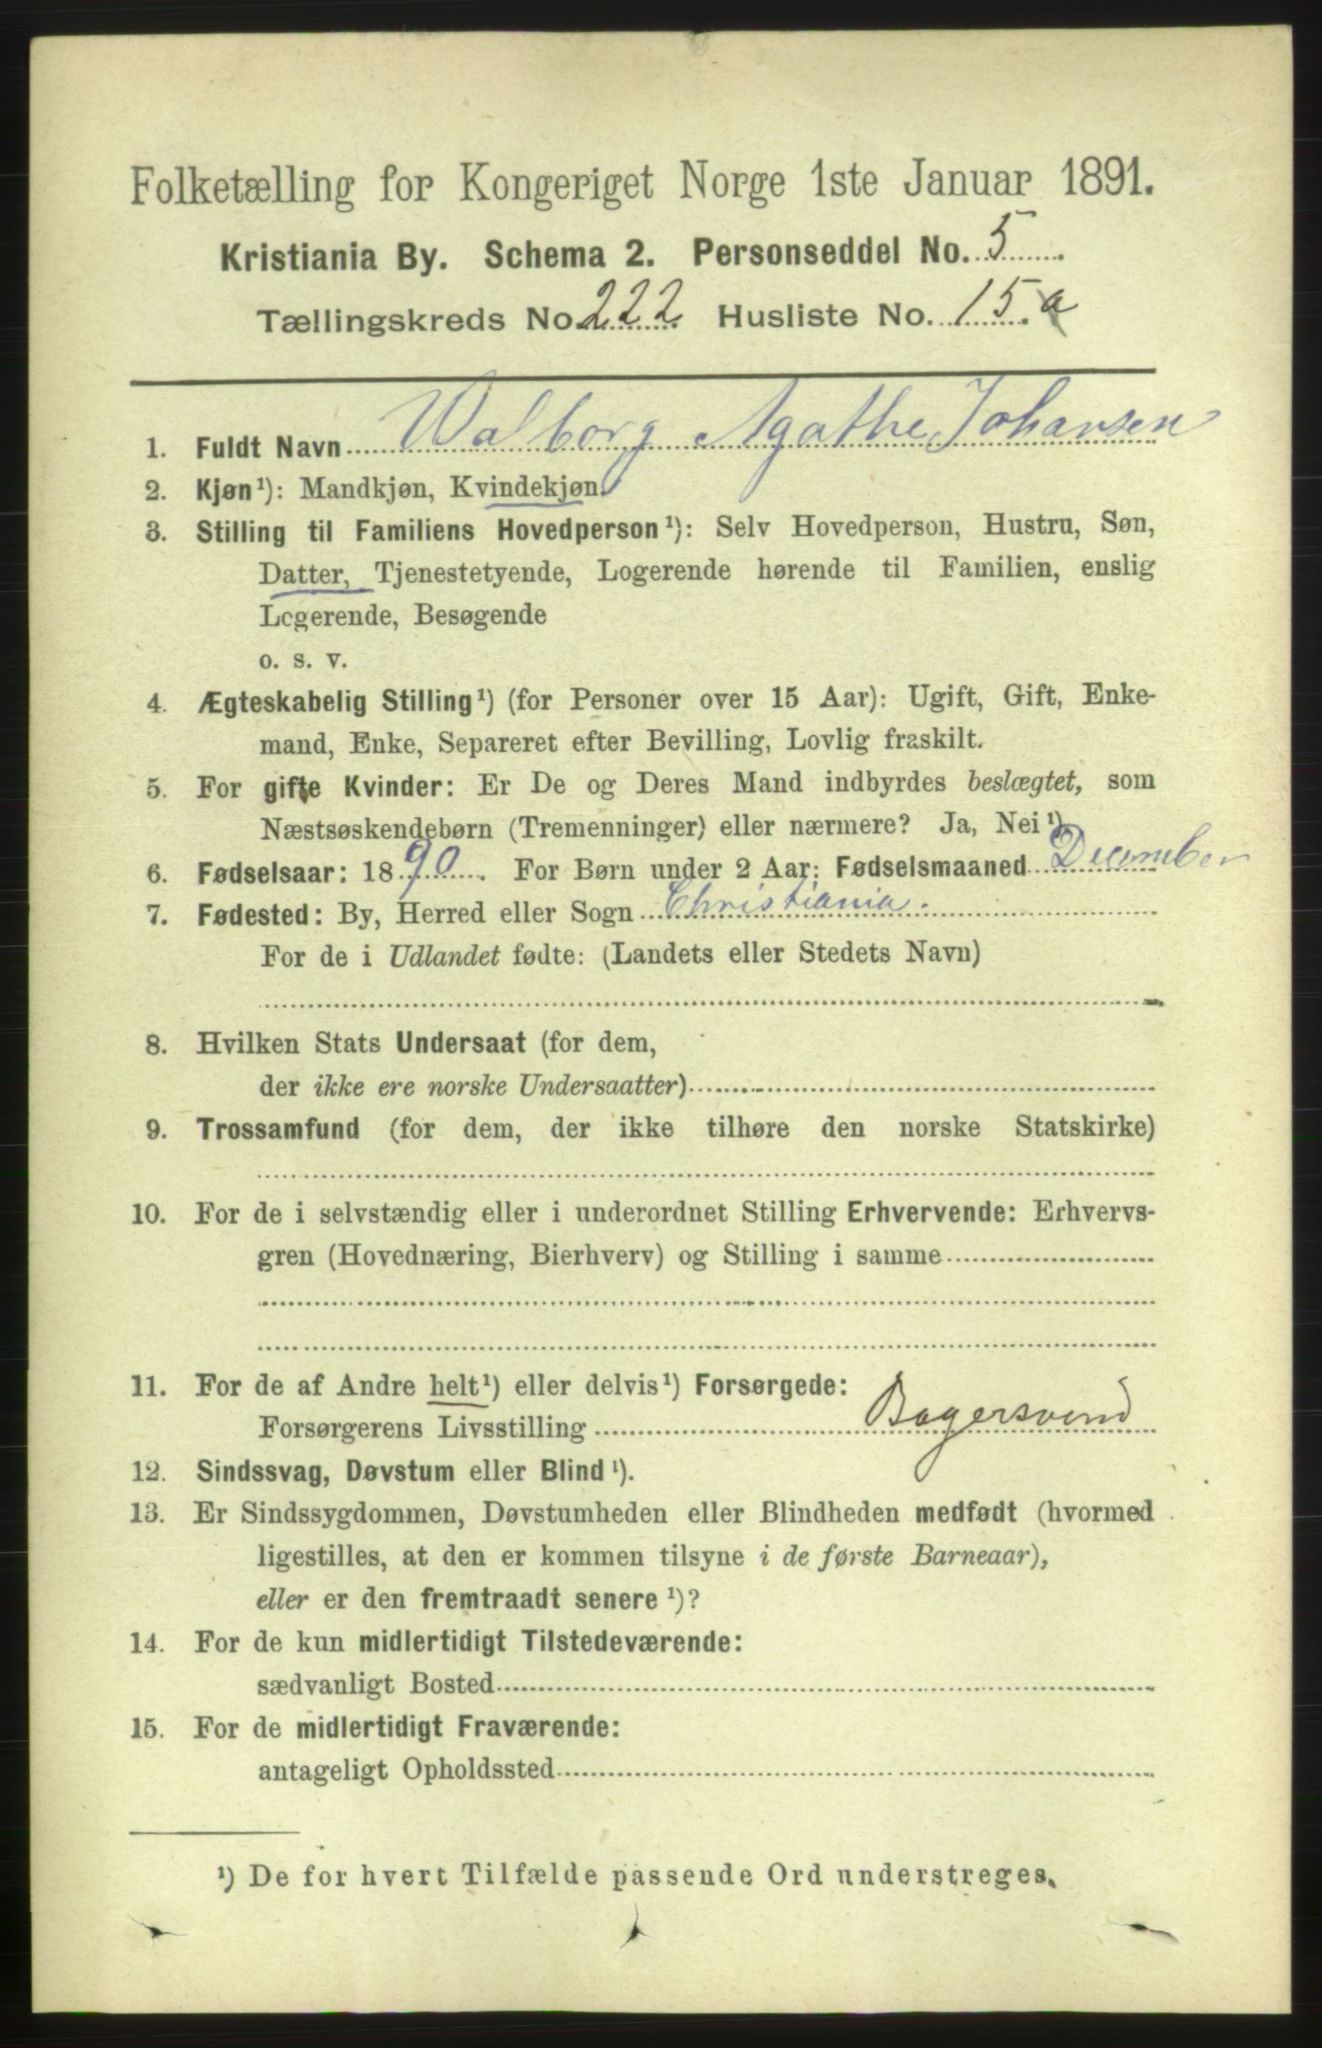 Folketælling for Kongeriget Norge 1ste Januar 1891.
Kristiania By. Schema 2. Personseddel No. 5
Tællingskreds No. 222 Husliste No. 15.a
1. Fuldt Navn Walborg Agathe Johansen
2. Kjøn¹): Mandkjøn, Kvindekjøn.
3. Stilling til Familiens Hovedperson¹): Selv Hovedperson, Hustru, Søn,
Datter, Tjenestetyende, Logerende hørende til Familien, enslig
Logerende, Besøgende
o. s. v.
4. Ægteskabelig Stilling¹) (for Personer over 15 Aar): Ugift, Gift, Enke-
mand, Enke, Separeret efter Bevilling, Lovlig fraskilt.
5. For gifte Kvinder: Er De og Deres Mand indbyrdes beslægtet, som
Næstsøskendebørn (Tremenninger) eller nærmere? Ja, Nei¹)
6. Fødselsaar: 1890. For Børn under 2 Aar: Fødselsmaaned December
7. Fødested: By, Herred eller Sogn Christiania.
For de i Udlandet fødte: (Landets eller Stedets Navn)
8. Hvilken Stats Undersaat (for dem,
der ikke ere norske Undersaatter)
9. Trossamfund (for dem, der ikke tilhøre den norske Statskirke)
10. For de i selvstændig eller i underordnet Stilling Erhvervende: Erhvervs-
gren (Hovednæring, Bierhverv) og Stilling i samme
11. For de af Andre helt¹) eller delvis¹) Forsørgede:
Forsørgerens Livsstilling Bagersvend
12. Sindssvag, Døvstum eller Blind¹).
13. Er Sindssygdommen, Døvstumheden eller Blindheden medfødt (hvormed
ligestilles, at den er kommen tilsyne i de første Barneaar),
eller er den fremtraadt senere¹)?
14. For de kun midlertidigt Tilstedeværende:
sædvanligt Bosted
15. For de midlertidigt Fraværende:
antageligt Opholdssted
¹) De for hvert Tilfælde passende Ord understreges.